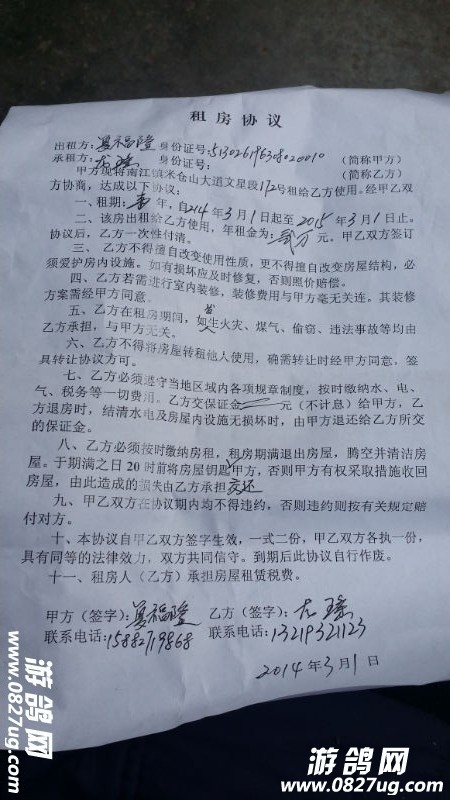 租房协议
出租方：夏福隆 身份证号：513026196308020010 （简称甲方）
承租方：尤瑶 身份证号： （简称乙方）
甲方现将南江镇米仓山大道文星段172号租给乙方使用。经甲乙双
方协商，达成以下协议：
一、租期：壹年，自2014年3月1日起至2015年3月1日止。
二、该房出租给乙方使用，年租金为：贰万元，甲乙双方签订
协议后，乙方一次性付清。
三、乙方不得擅自改变使用性质，更不得擅自改变房屋结构，必
须爱护房内设施。如有损坏应及时修复，否则照价赔偿。
四、乙方若需进行室内装修，装修费用与甲方毫无关连。其装修
方案需经甲方同意。
五、乙方在租房期间，如发生火灾、煤气、偷窃、违法事故等均由
乙方承担，与甲方无关。
六、乙方不得将房屋转租他人使用，确需转让时经甲方同意，签
具转让协议方可。
七、乙方必须遵守当地区域内各项规章制度，按时缴纳水、电、
气、税务等一切费用。乙方交保证金 元（不计息）给甲方，乙
方退房时，结清水电及房屋内设施无损坏时，由甲方退还给乙方所交
的保证金。
八、乙方必须按时缴纳房租，租房期满退出房屋，腾空并清洁房
屋。于期满之日20时前将房屋钥匙甲方，否则甲方有权采取措施收回
房屋，由此造成的损失由乙方承担 交还
九、甲乙双方在协议期内均不得违约，否则违约则按有关规定赔
付对方。
十、本协议自甲乙双方签字生效，一式二份，甲乙双方各执一份，
具有同等的法律效力，双方共同信守。到期后此协议自行作废。
十一、租房人（乙方）承担房屋租赁税费。
甲方（签字）：夏福隆 乙方（签字）：尤瑶
联系电话：15882719868 联系电话：13219321123
2014年3月1日
游鸽网
www.0827ug.com
游鸽网
www.0827ug.com